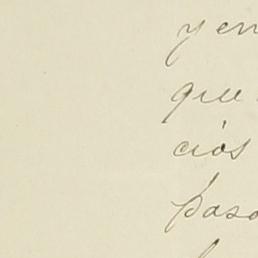 y en
que
ciós
paso